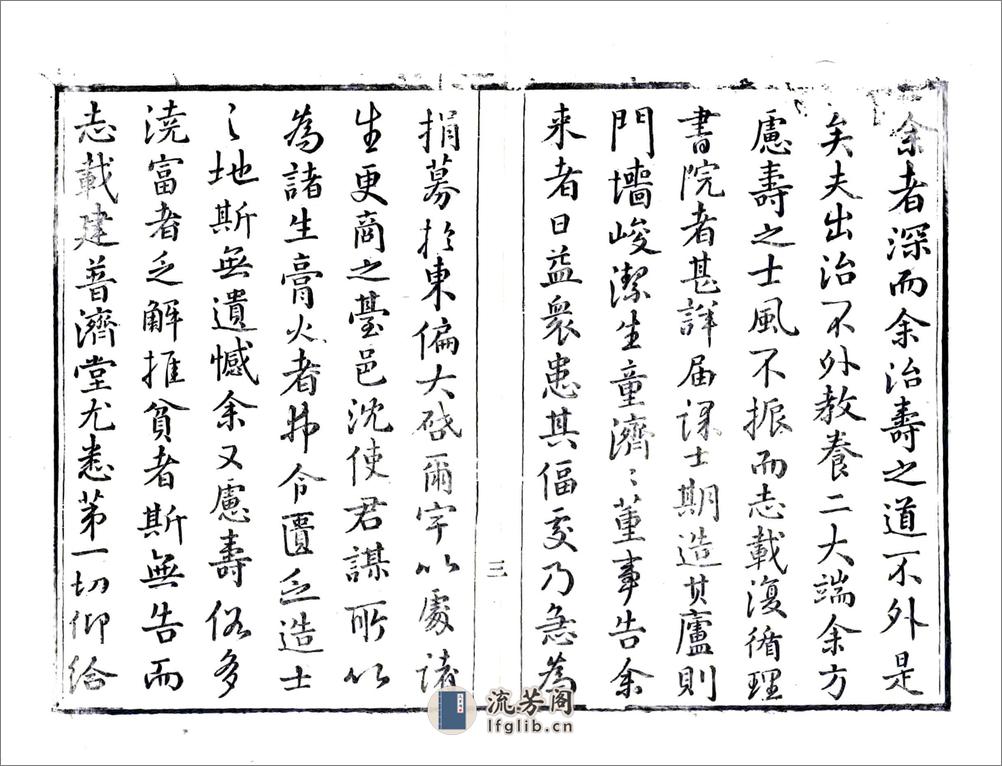 余者深而余治壽之道不外是
矣夫出治不外教養二大端余方
慮壽之士風不振而志載復循理
書院者甚詳届課士期造其廬則
門墻峻潔生童濟〻董事告余
来者日益衆患其偪窄乃急為
三
捐募於東偏大啟爾宇以處諸
生更商之臺邑沈使君謀所以
為諸生膏火者弗令匱乏造士
之地斯無遺憾余又慮壽俗多
澆富者乏解推貧者斯無告而
志載建普濟堂尤悉第一切仰給
流芳阁
lfglib.cn